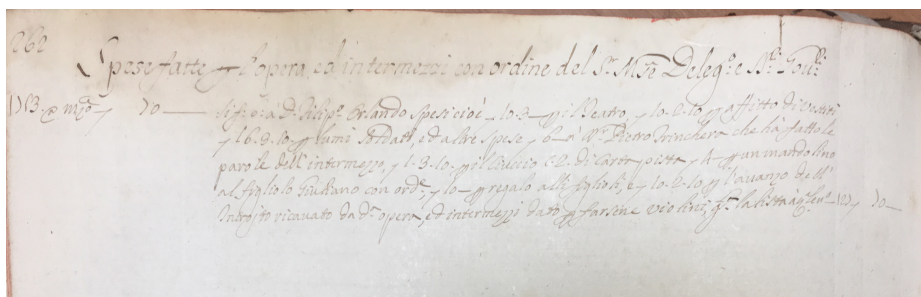 262
Spese fatte p l'opera, ed intermezzi con ordine del Sr. Mse Delego. e Ri. Govri.
70 — si fà à D. Filippo Orlando spesi cioè 10-3- p il Teatro, y 10-2-10 p affitto di vestiti
y 16-3-10 p lumi soldati, ed altre spese y 6 à Pietro Trinchera che hà fatto le
parole dell'intermezzo, y 1-3-10 p il c-2- di carta pista y 4 p un mandolino
al figliolo Giuliano con orde. y 10 p regalo alli figlioli, e y 10-2-10 p l'avanzo dell'
Introito ricavato da da. opera, ed intermezzi dato p farsene violini, la lista y 70 —